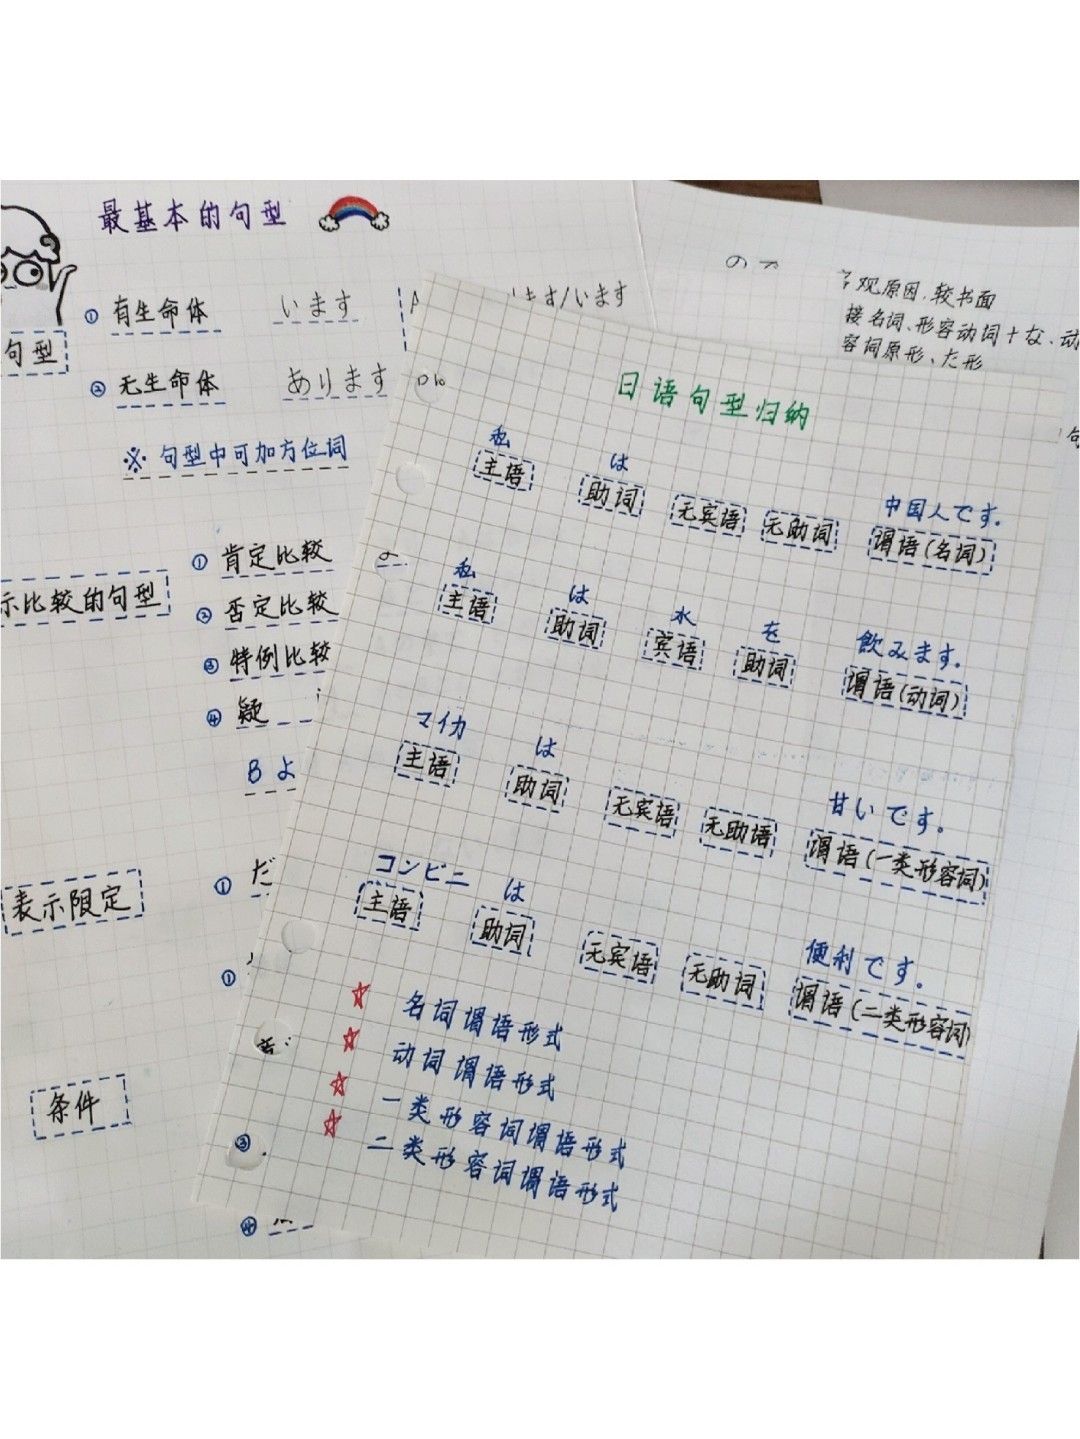 最基本的句型
① 有生命体 います
句型
② 无生命体 あります
※ 句型中可加方位词
① 肯定比较
示比较的句型
② 否定比较
③ 特例比较
④ 疑
Bよ
表示限定
①
①
条件
③
④
ます/います
观原因,较书面
接名词、形容动词+な、动
容词原形、た形
日语句型归纳
私 は 中国人です。
主语 助词 无宾语 无助词 谓语(名词)
私 は 水 を 飲みます。
主语 助词 宾语 助词 谓语(动词)
マイカ は 甘いです。
主语 助词 无宾语 无助语 谓语(一类形容词)
コンビニ は 便利です。
主语 助词 无宾语 无助词 谓语(二类形容词)
☆ 名词谓语形式
☆ 动词谓语形式
☆ 一类形容词谓语形式
☆ 二类形容词谓语形式